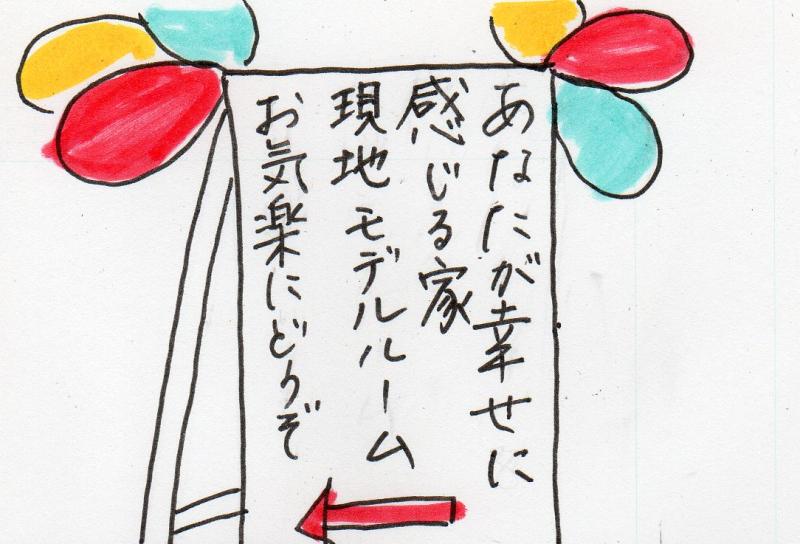 あなたが幸せに
感じる家
現地モデルルーム
お気楽にどうぞ